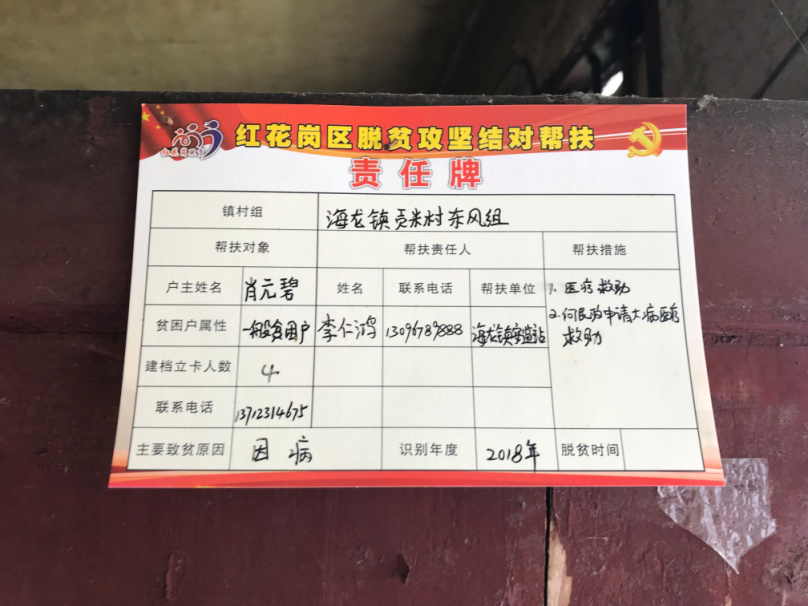 红花岗区脱贫攻坚结对帮扶
责任牌
镇村组 海龙镇贡米村东风组
帮扶对象 帮扶责任人 帮扶措施
户主姓名 肖元碧 姓名 联系电话 帮扶单位 1. 医疗救助
贫困户属性 一般贫困户 李仁鸿 13096789888 海龙镇 2. 向民政申请大病医疗
救助
建档立卡人数 4
联系电话 13712314675
主要致贫原因 因病 识别年度 2018年 脱贫时间